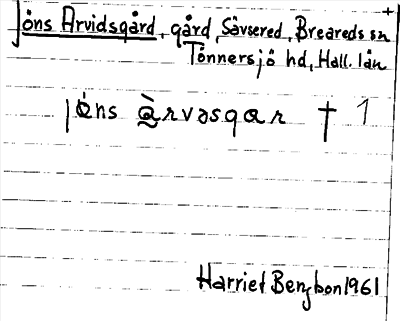 +
Jöns Arvidsgård, gård, Sävsered, Breareds sn
Tönnersjö hd, Hall. län
jöns àrvəsgar † 1
Harriet Bengtson 1961